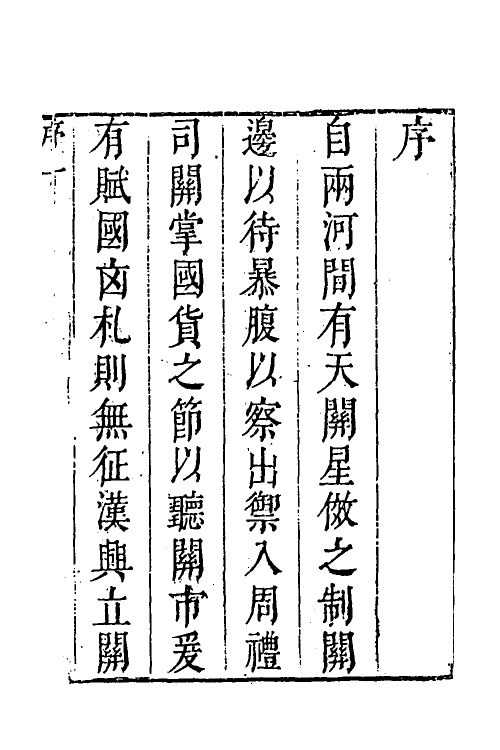 序
自兩河間有天關星倣之制關
邊以待暴腹以察出禦入周禮
司關掌國貨之節以聽關市爰
有賦國凶札則無征漢興立關
序一